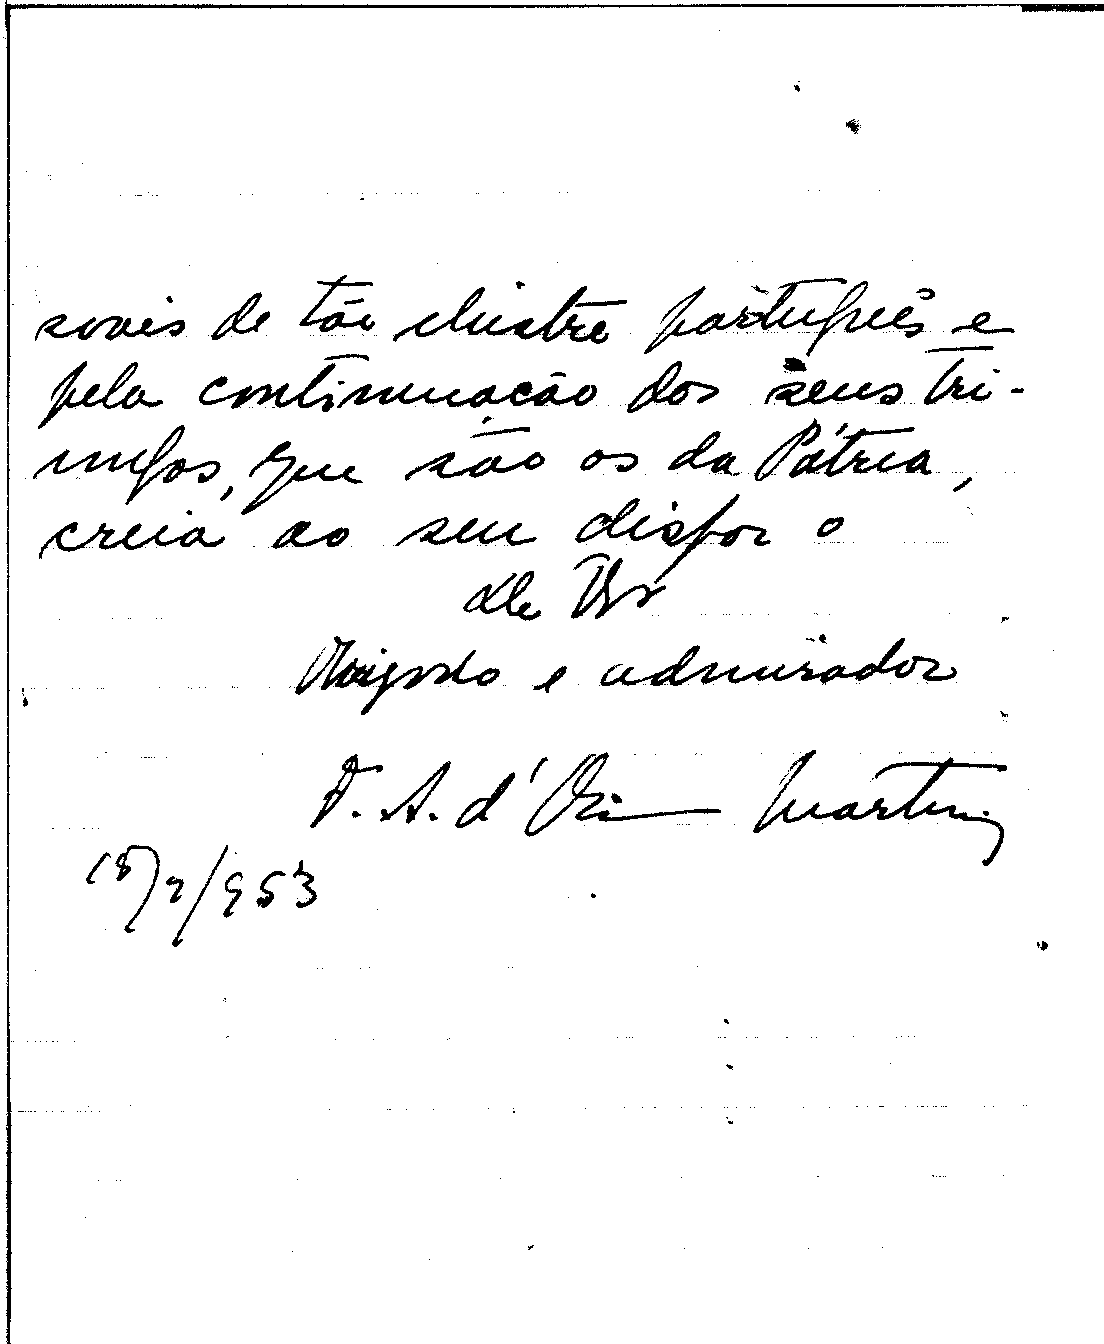 soais de tão ilustre português e
pela continuação dos seus tri-
unfos, que são os da Pátria,
creia ao seu dispor o
de
Obrigado e admirador
F. A. d'Oliveira Martins
18/2/953